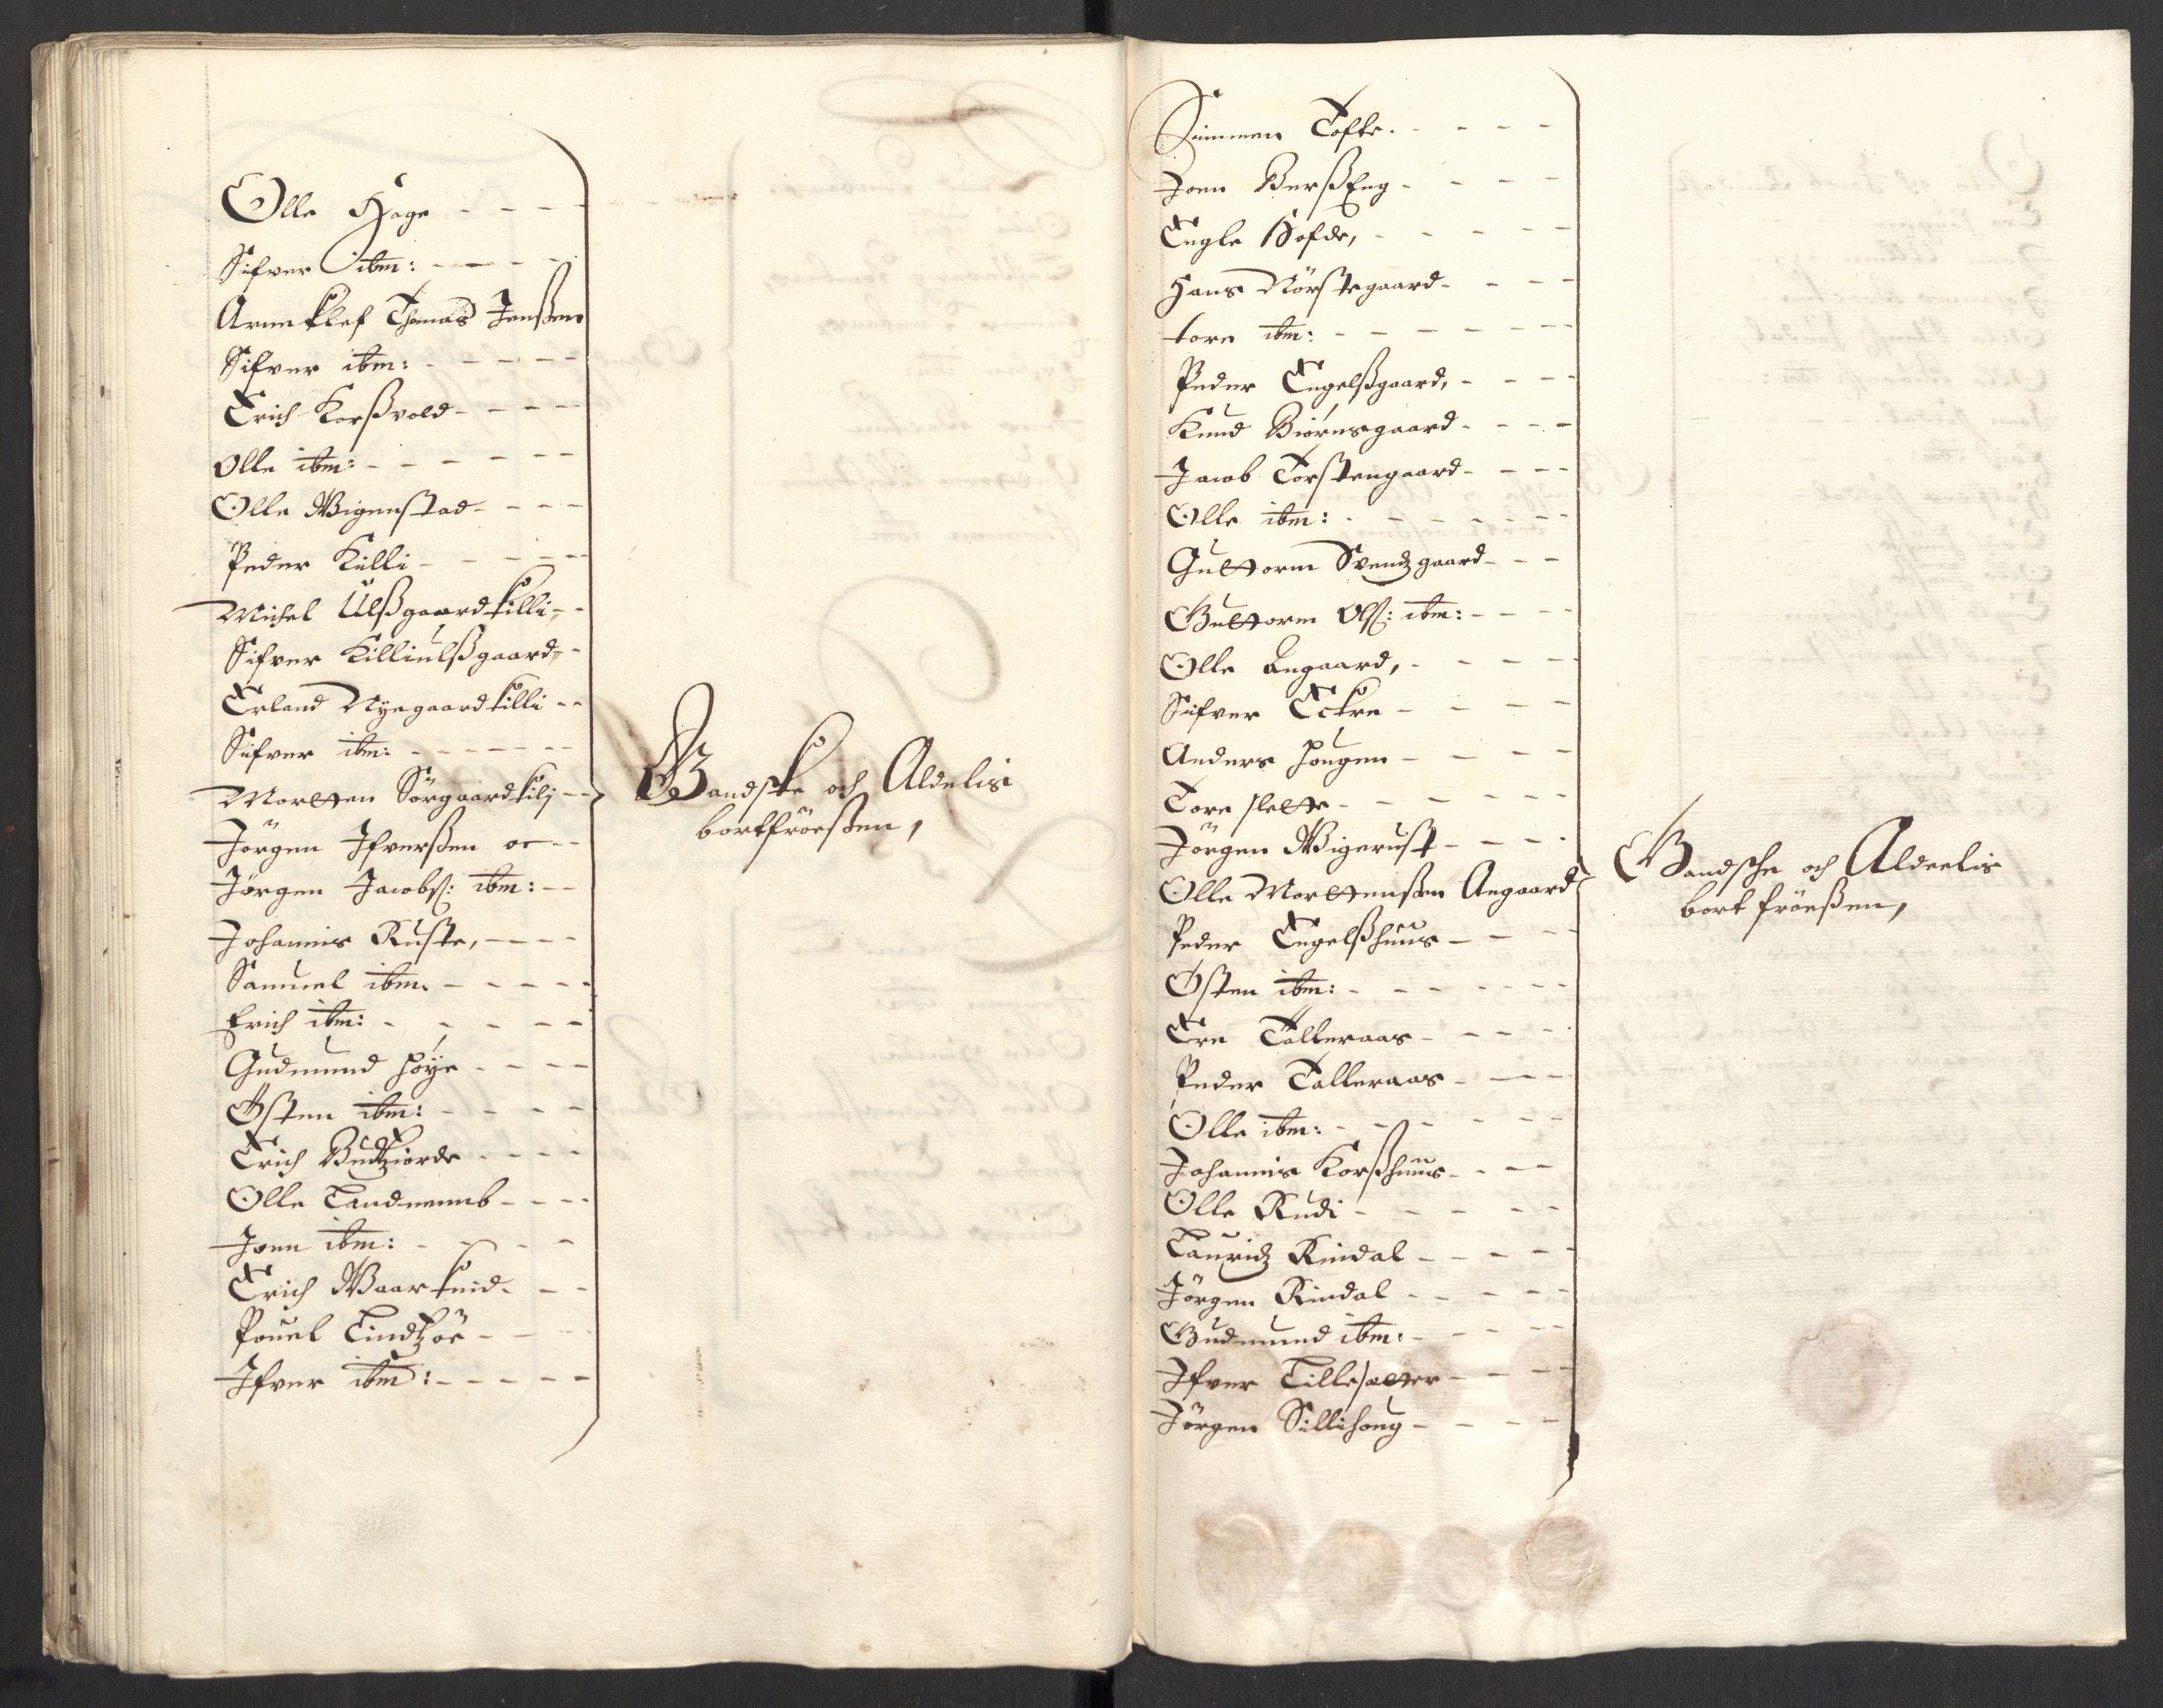 Olle Hage - - - -
Sifver ibm: - - - -
Arneklef Thomas Jenßen
Sifver ibm: - - - - -
Erich Korßvold - - - -
Olle ibm: - - - - - -
Olle Wigenstad - - - -
Peder Killi - - - - -
Michel Ulßgaardkilli - -
Sifver Killiulßgaard, -
Erland Nyegaardkilli - -
Sifver ibm: - - - - - -
Mortten Sörgaardkilj - -
Jörgen Ifverßen oc - -
Jörgen Jacobs: ibm: - -
Johannis Ruste, - - - -
Samuel ibm. - - - - -
Erich ibm: - - - - -
Gudmund Höye - - - -
Östen ibm: - - - -
Erich Budtziorde - - - -
Olle Landnemb - - - -
Joen ibm: - - - -
Erich Waarkind - - -
Pouel Lindtzöe - -
Ifver ibm: - - - - -
Gandske och Aldelis
bortfröeßen,
Simmen Tofte. - - - -
Joen BerßEng - - - -
Engle Hofde, - - - - -
Hans Nörstegaard - - - -
tore ibm: - - - - - -
Peder Engelßgaard, - - - -
Knud Biörnsgaard - - - -
Jacob Torstengaard - - - -
Olle ibm: - - - - - -
Guttorm Svendzgaard - - -
Guttorm Ols: ibm: - - - -
Olle Angaard, - - - - -
Sifver Eckre - - - - -
Anders Hougen - - - -
Tore slette - - - - - -
Jörgen Wigerust - - - -
Olle Mortenßen Angaard
Peder Engelßhuus - - - -
Östen ibm: - - - - - -
Ere Tolleraas - - - -
Peder Talleraas - - -
Olle ibm: - - - - - -
Johannis Korßhuus - - - -
Olle Rudi - - - - -
Lauridz Rindal - - - - -
Jörgen Rindal - - - - -
Gudmund ibm: - - - -
Ifver Lillesætter - - - -
Jörgen Sillihoug - - - -
Gandsche och Aldeelis
bort fröeßen,